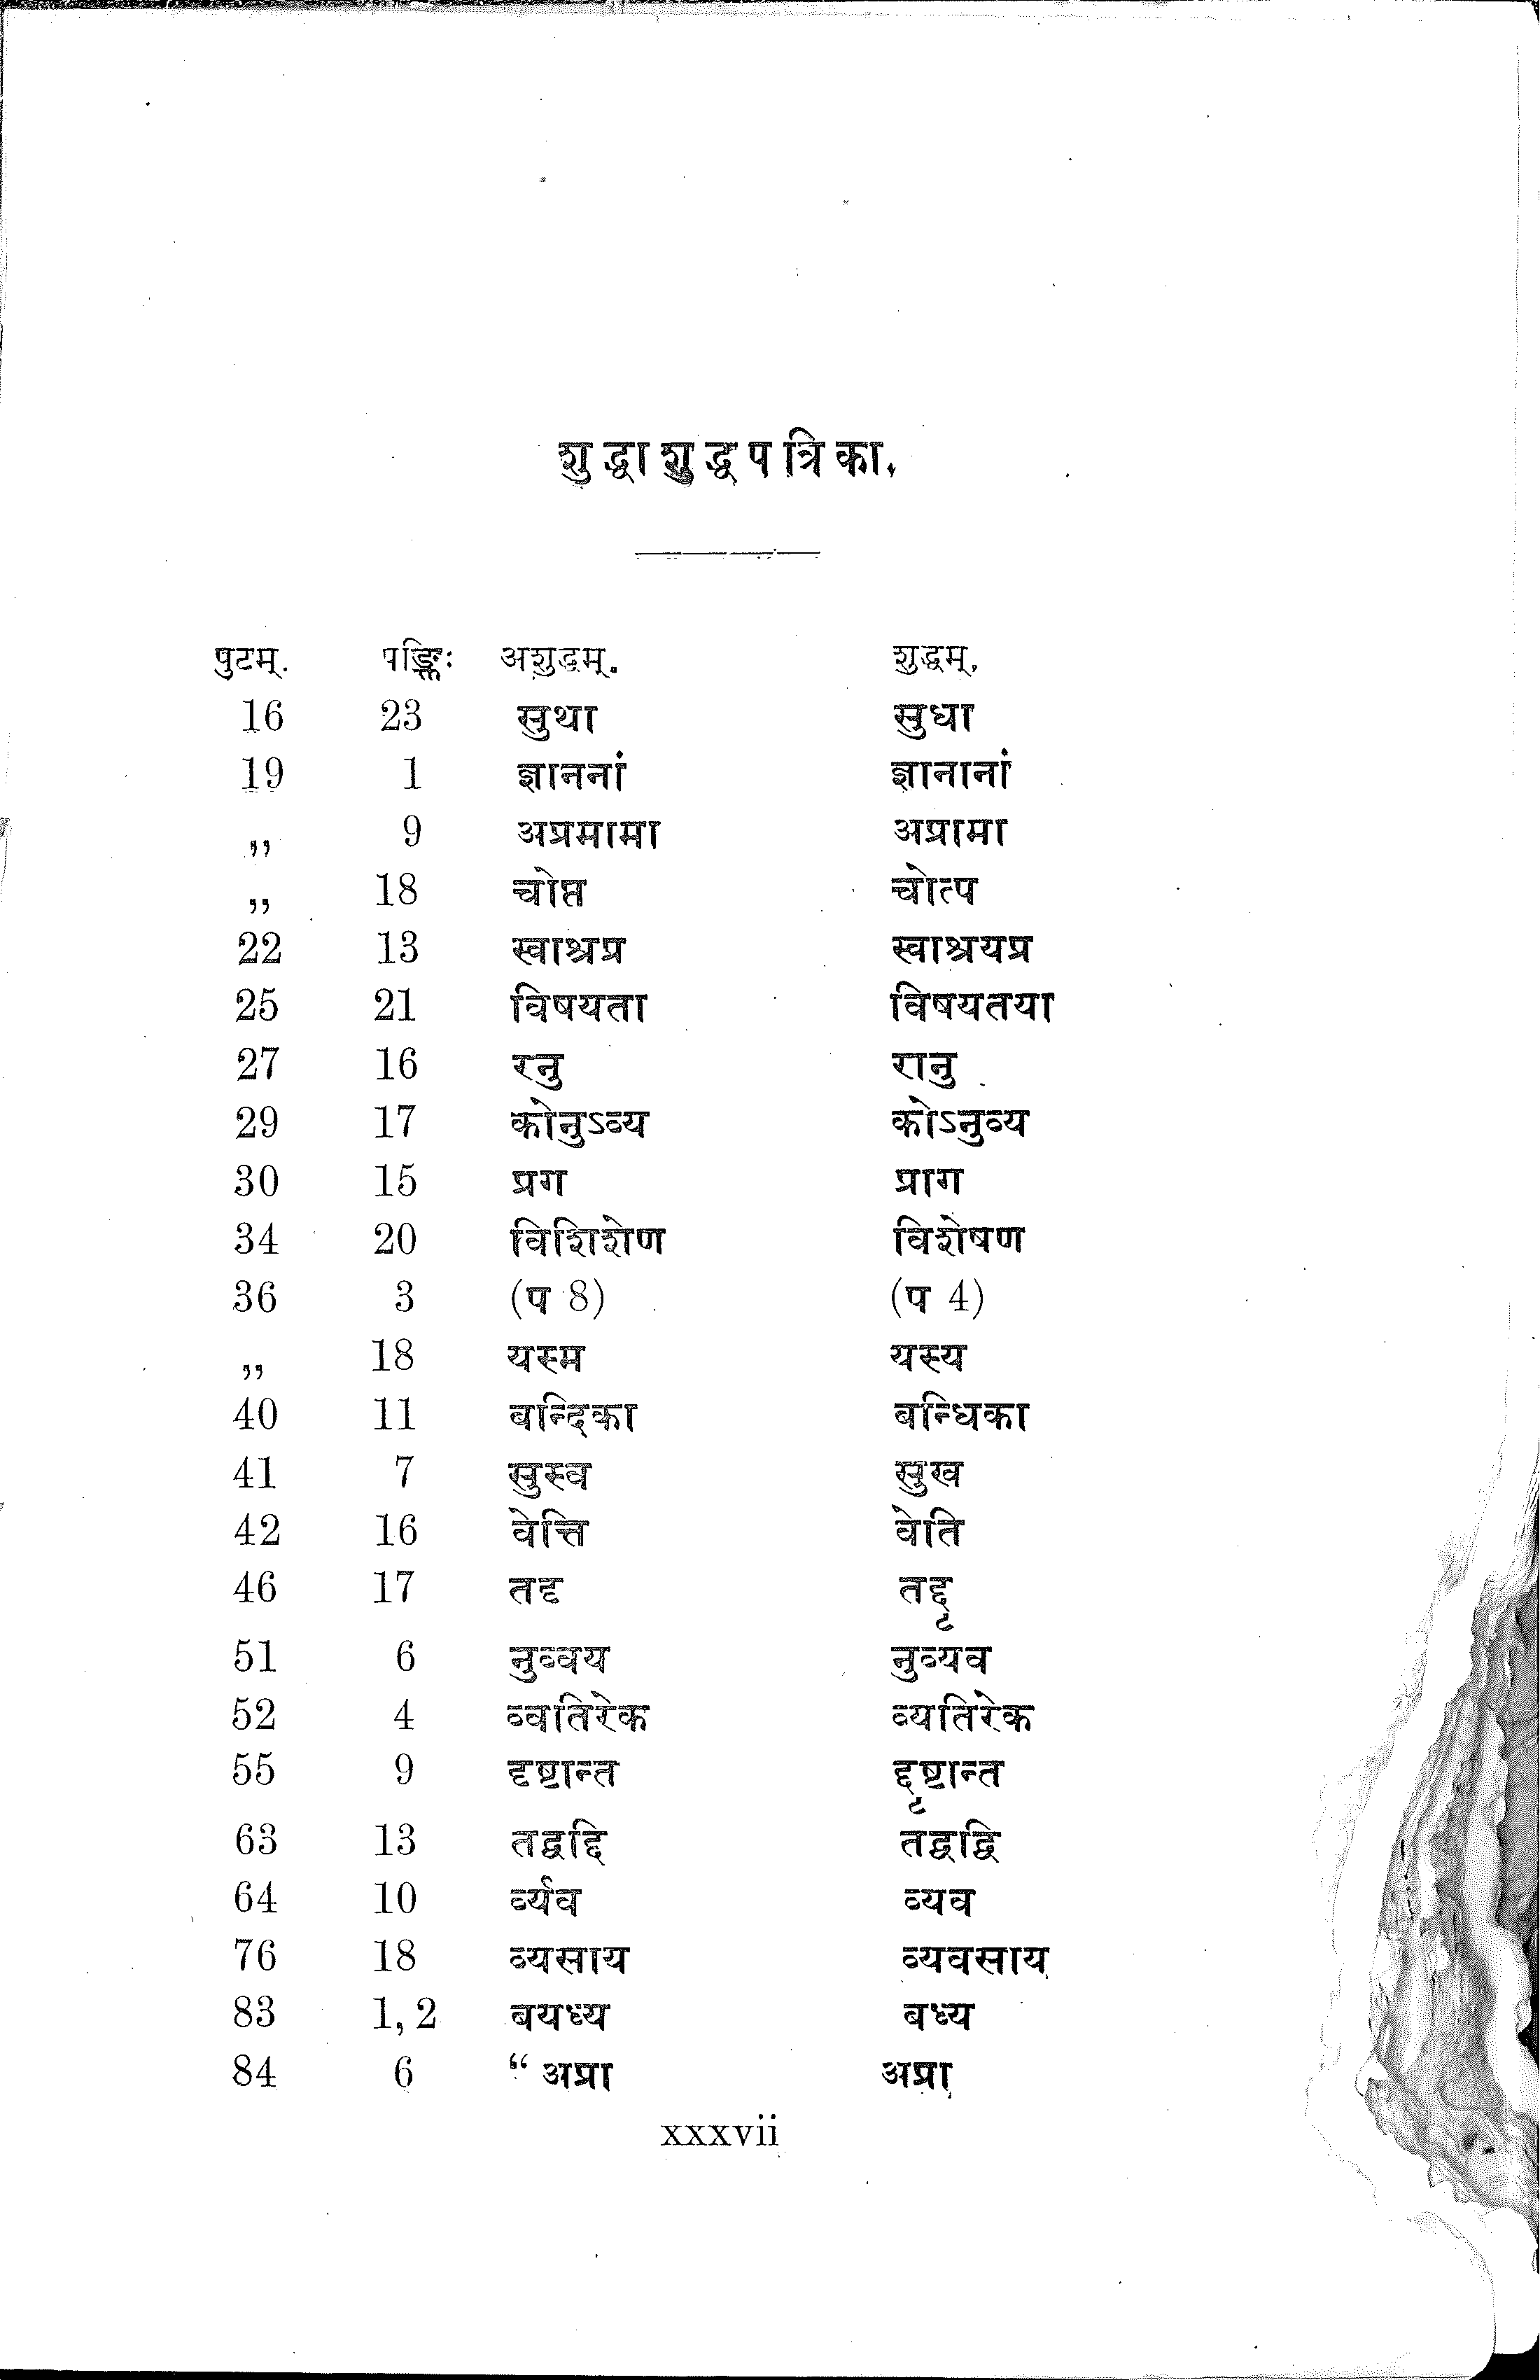 शुद्धाशुद्धपत्रिका.
पुटम्. पङ्क्तिः अशुद्धम्. शुद्धम्.
16 23 सुथा सुधा
19 1 ज्ञाननां ज्ञानानां
,, 9 अप्रमामा अप्रामा
,, 18 चोप्त चोत्प
22 13 स्वाश्रप्र स्वाश्रयप्र
25 21 विषयता विषयतया
27 16 रनु रानु
29 17 कोनुऽव्य कोऽनुव्य
30 15 प्रग प्राग
34 20 विशिशेण विशेषण
36 3 (प 8) (प 4)
,, 18 यस्म यस्य
40 11 बन्दिका बन्धिका
41 7 सुस्व सुख
42 16 वेत्ति वेति
46 17 तदृ तद्दृ
51 6 नुव्वय नुव्यव
52 4 व्वतिरेक व्यतिरेक
55 9 दृष्टान्त द्दृष्टान्त
63 13 तद्वद्दि तद्वद्वि
64 10 र्व्यव व्यव
76 18 व्यसाय व्यवसाय
83 1, 2 बयध्य बध्य
84 6 “ अप्रा अप्रा
xxxvii